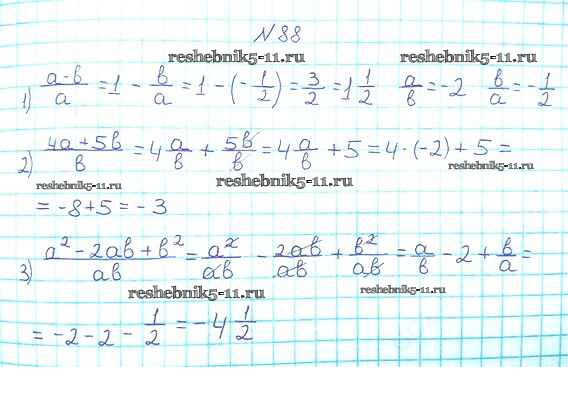 №88
reshebnik5-11.ru reshebnik5-11.ru
1) (a-b)/a = 1 - b/a = 1 - (-1/2) = 3/2 = 1 1/2 a/b = -2 b/a = -1/2
2) (4a+5b)/b = 4 a/b + 5b/b = 4 a/b + 5 = 4·(-2)+5 =
reshebnik5-11.ru
reshebnik5-11.ru reshebnik5-11.ru
= -8+5 = -3
3) (a²-2ab+b²)/ab = a²/ab - 2ab/ab + b²/ab = a/b - 2 + b/a =
reshebnik5-11.ru reshebnik5-11.ru
= -2-2- 1/2 = -4 1/2